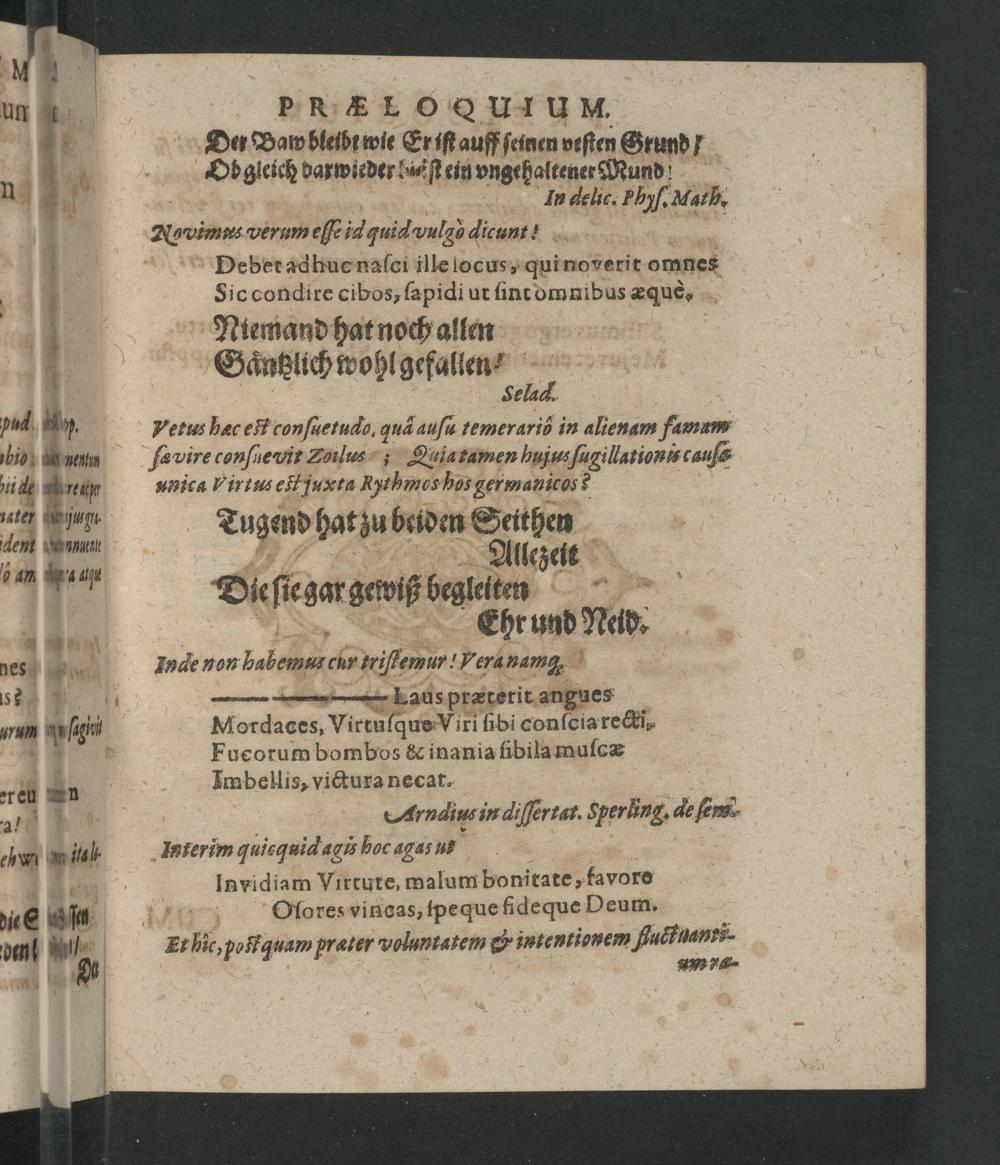 PRÆLOQUIUM.
Der Baw bleibt wie Er ist auff seinen vesten Grund /
Ob gleich darwieder ein ungehaltener Mund!
In delic. Phyſ. Math.
Novimus verum eſſe id quid vulgò dicunt!
Debet adhuc naſci ille locus, qui noverit omnes
Sic condire cibos, ſapidi ut ſint omnibus æquè.
Niemand hat noch allen
Gäntzlich wohl gefallen!
Selad.
Vetus hæc eſt conſuetudo, quâ auſu temerariô in alienam famam
ſævire conſuevit Zoilus ; Quia tamen hujus ſugillationis cauſa
unica Virtus eſt juxta Rythmos hos germanicos?
Tugend hat zu beiden Seithen
Allezeit
Die sie gar gewiß begleiten
Ehr und Neid.
Inde non habemus cur triſtemur! Vera namq;
Laus præterit angues
Mordaces, Virtuſque Viri ſibi conſcia recti,
Fucorum bombos & inania ſibila muſcæ
Imbellis, victura necat.
Arndius in diſſertat. Sperling. de ſem.
Interim quicquid agis hoc agas ut
Invidiam Virtute, malum bonitate, favore
Oſores vincas, ſpeque fideque Deum.
Et hîc, poſtquam præter voluntatem & intentionem fluctuanti-
um ra-
pud
nentum
hii de
nater
ident
nnuente
lô am
atque
nes
urum
ſagivit
ita
Der